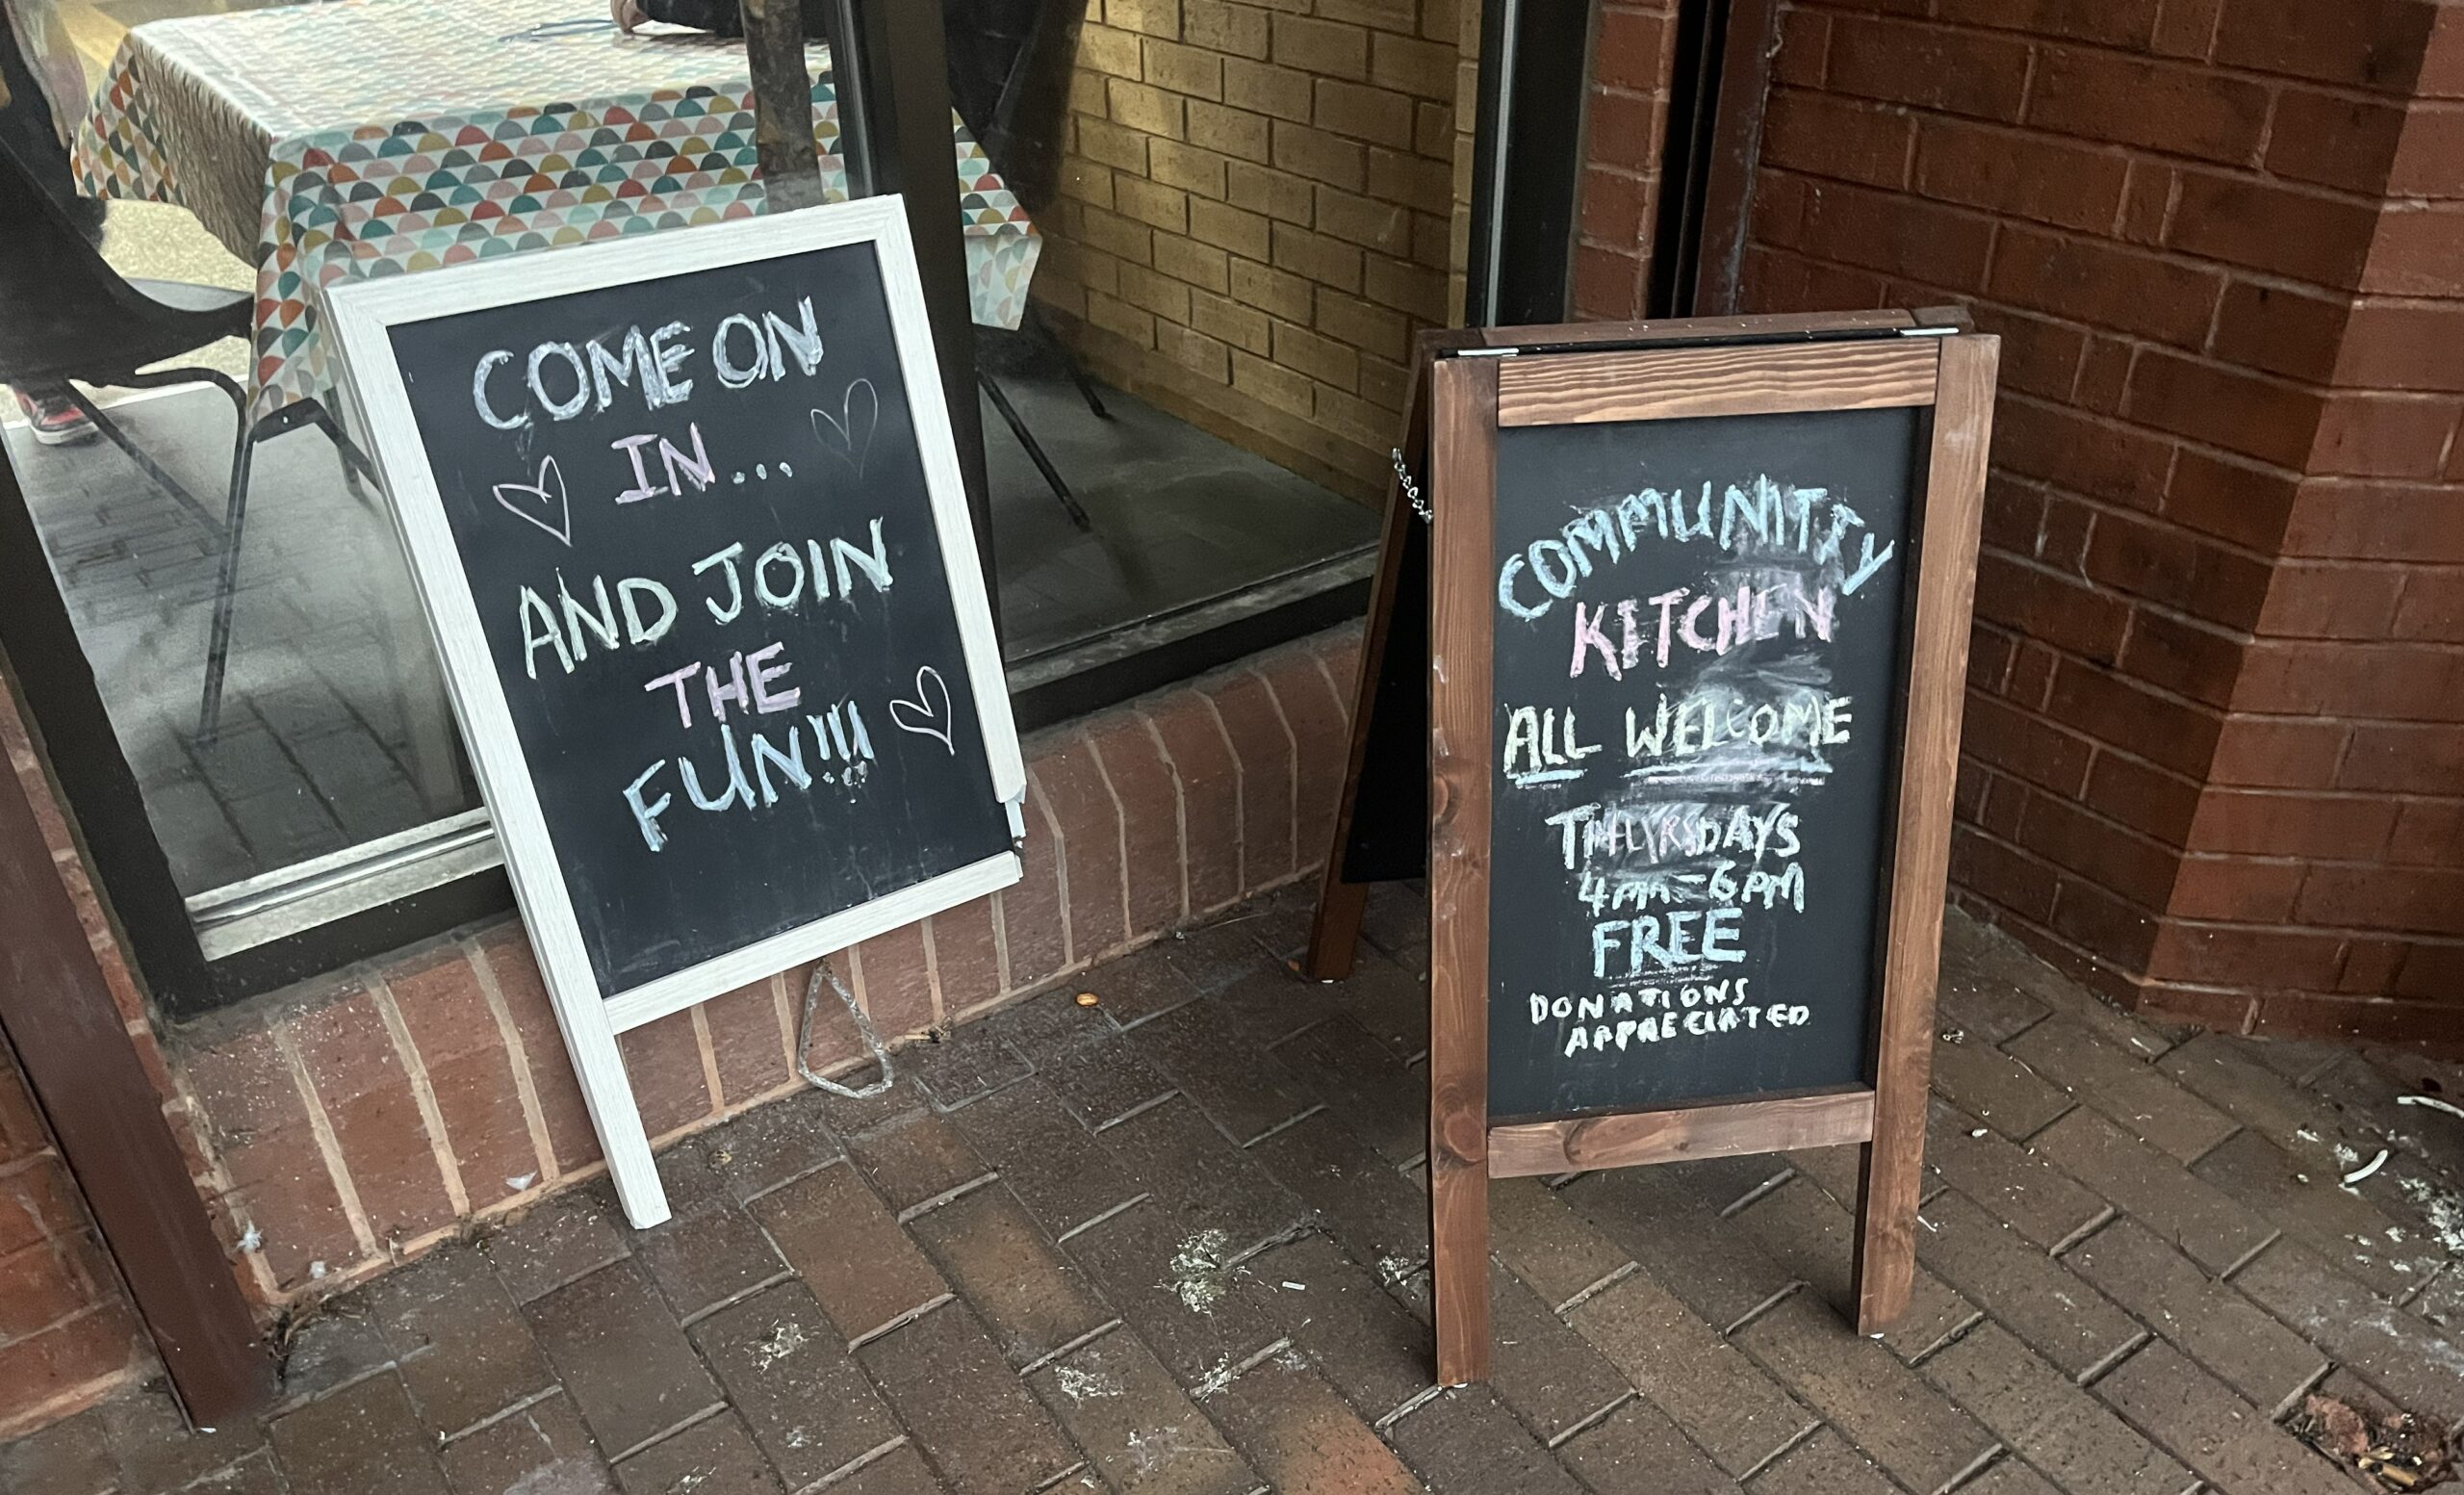 COME ON
IN...
AND JOIN
THE
FUN!!!
COMMUNITY
KITCHEN
ALL WELCOME
THURSDAYS
4PM-6PM
FREE
DONATIONS
APPRECIATED